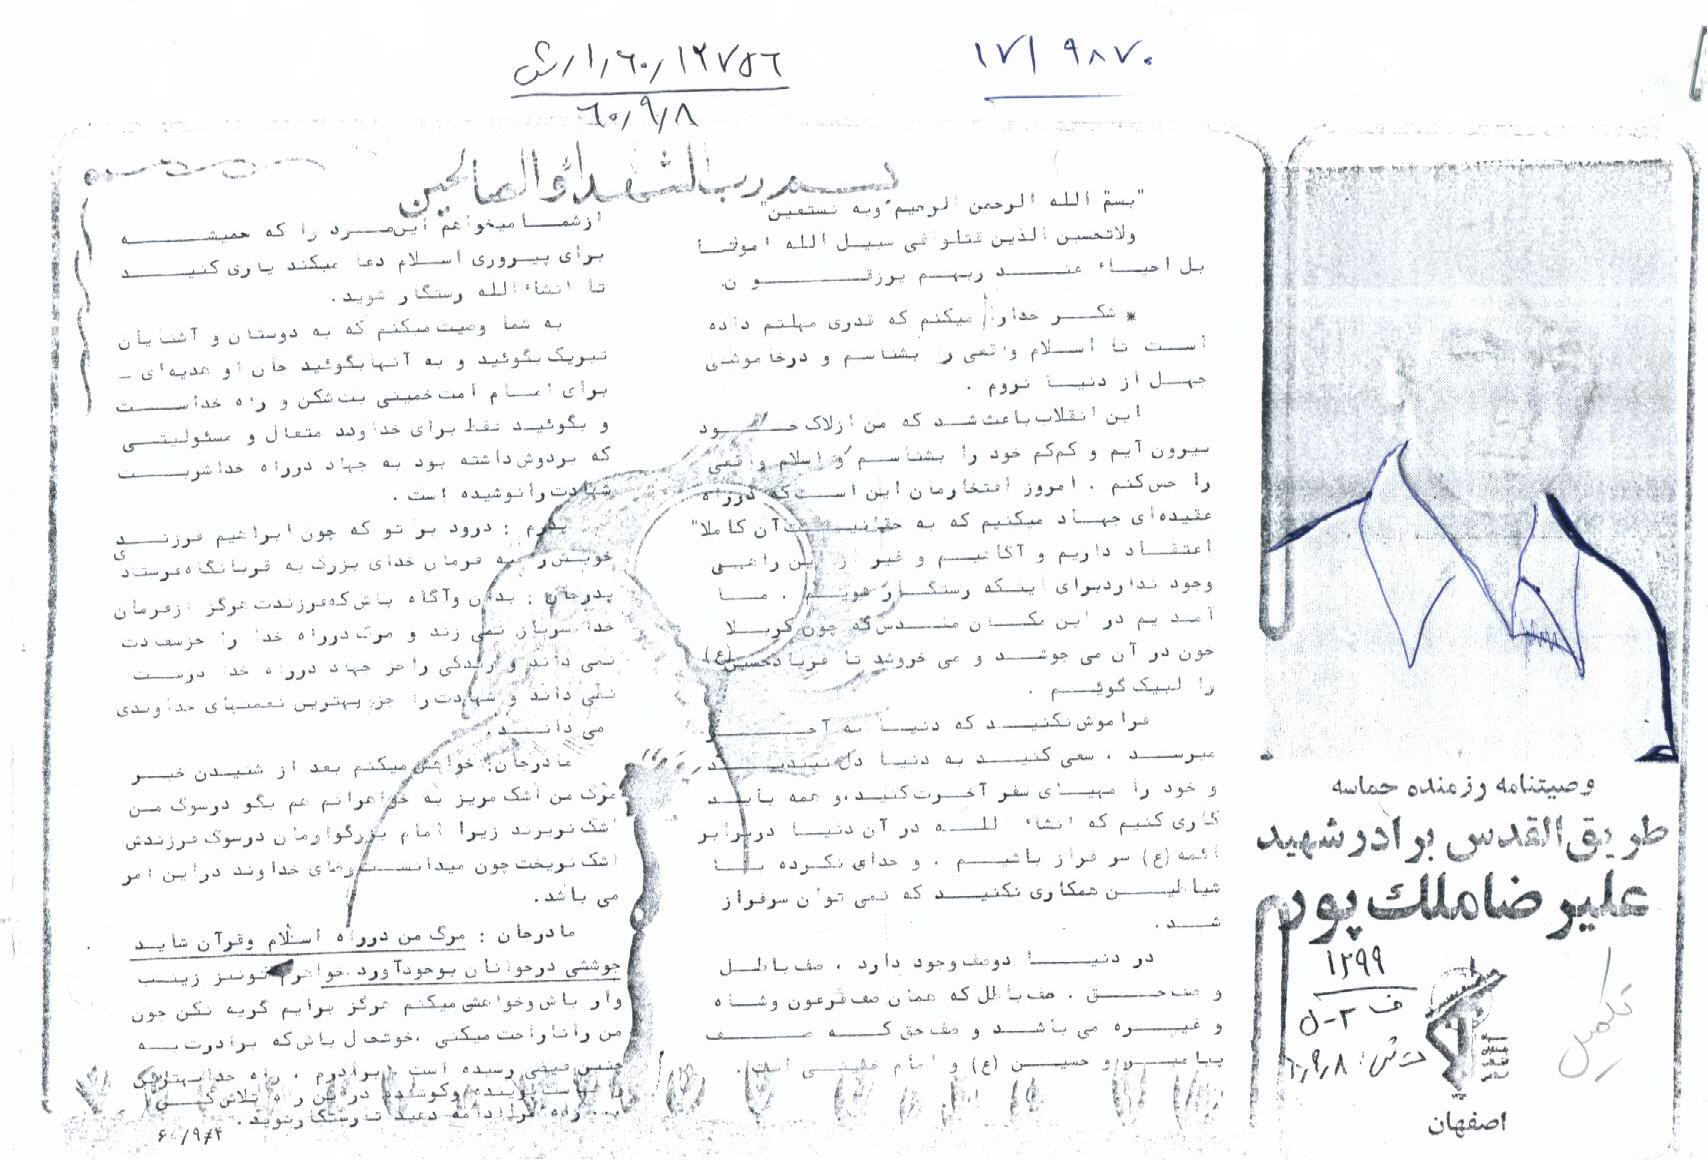 ۱۷/۹۸۷۰
۱۲۷۵۶/۶۰/۱/ش
۶۰/۹/۸
بسم رب الشهداء والصالحین
"بسم الله الرحمن الرحیم وبه نستعین"
ولاتحسبن الذین قتلو فی سبیل الله امواتا
بل احیاء عند ربهم یرزقون
* شکر خدارا میکنم که قدری مهلتم داده
است تا اسلام واقعی را بشناسم و درخاموشی
جهل از دنیا نروم .
این انقلاب باعث شد که من ازلاک خود
بیرون آیم و کم‌کم خود را بشناسم و اسلام واقعی
را حس کنم . امروز افتخارمان این است که درراه
عقیده‌ای جهاد میکنیم که به حقانیت آن کاملا"
اعتقاد داریم و آگاهیم و غیر از این راهی
وجود نداردبرای اینکه رستگار شویم . ما
آمدیم در این مکان مقدس که چون کربلا
خون در آن می جوشد و می خروشد تا فریادحسین (ع)
را لبیک گوئیم .
فراموش نکنید که دنیا به آخر
میرسد . سعی کنید به دنیا دل نبندید
و خود را مهیای سفر آخرت کنید،و همه باید
کاری کنیم که انشاء الله در آن دنیا دربرابر
ائمه (ع) سرفراز باشیم . و خدای نکرده با
شیاطین همکاری نکنید که نمی توان سرفراز
شد .
در دنیا دوصف وجود دارد ، صف باطل
و صف حق . صف باطل که همان صف فرعون وشاه
و غیره می باشد و صف حق که صف
پیامبر و حسین (ع) و امام خمینی است .
ازشما میخواهم این مرد را که همیشه
برای پیروزی اسلام دعا میکند یاری کنید
تا انشاءالله رستگار شوید .
به شما وصیت میکنم که به دوستان و آشنایان
تبریک بگوئید و به آنها بگوئید جان او هدیه‌ای ـ
برای امام امت خمینی بت شکن و راه خداست
و بگوئید فقط برای خداوند متعال و مسئولیتی
که بردوش داشته بود به جهاد درراه خدا شربت
شهادت را نوشیده است .
پدرم : درود بر تو که چون ابراهیم فرزند
خویش را به فرمان خدای بزرگ به قربانگاه فرستادی
پدرجان : بدان وآگاه باش که فرزندت هرگز ازفرمان
خدا سرباز نمی زند و مرگ درراه خدا را جز سعادت
نمی داند و زندگی را جز جهاد درراه خدا درست
نمی داند و شهادت را جز بهترین نعمتهای خداوندی
می داند .
مادرجان: خواهش میکنم بعد از شنیدن خبر
مرگ من اشک مریز به خواهرانم هم بگو درسوگ من
اشک نریزند زیرا امام بزرگوارمان درسوگ فرزندش
اشک نریخت چون میدانست رضای خداوند دراین امر
می باشد .
مادرجان : مرگ من درراه اسلام وقرآن شاید
جوششی درجوانان بوجودآورد خواهرم تونیز زینب
وار باش وخواهش میکنم هرگز برایم گریه نکن چون
من را ناراحت میکنی ،خوشحال باش که برادرت به
چنین فیضی رسیده است . برادرم ، راه خدا بهترین
وکوشنده در این راه تلاش کن
راه مرا ادامه دهید تا رستگار شوید .
۶۰/۹/۴
وصیتنامه رزمنده حماسه
طریق القدس برادر شهید
علیرضا ملک پور
۱۲۹۹
ف ۲-ل
ت ش: ۶۰/۹/۸
تکمیل
اصفهان